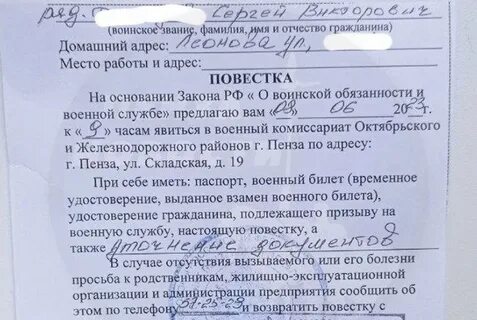 ряд. Сергей Викторович
(воинское звание, фамилия, имя и отчество гражданина)
Домашний адрес: Леонова ул,
Место работы и адрес:
ПОВЕСТКА
На основании Закона РФ « О воинской обязанности и
военной службе» предлагаю вам « 09 » 06 2023г.
к « 9 » часам явиться в военный комиссариат Октябрьского
и Железнодорожного районов г. Пенза по адресу:
г. Пенза, ул. Складская, д. 19
При себе иметь: паспорт, военный билет (временное
удостоверение, выданное взамен военного билета),
удостоверение гражданина, подлежащего призыву на
военную службу, настоящую повестку, а
также уточнение документов
В случае отсутствия вызываемого или его болезни
просьба к родственникам, жилищно-эксплуатационной
организации и администрации предприятия сообщить об
этом по телефону и возвратить повестку с